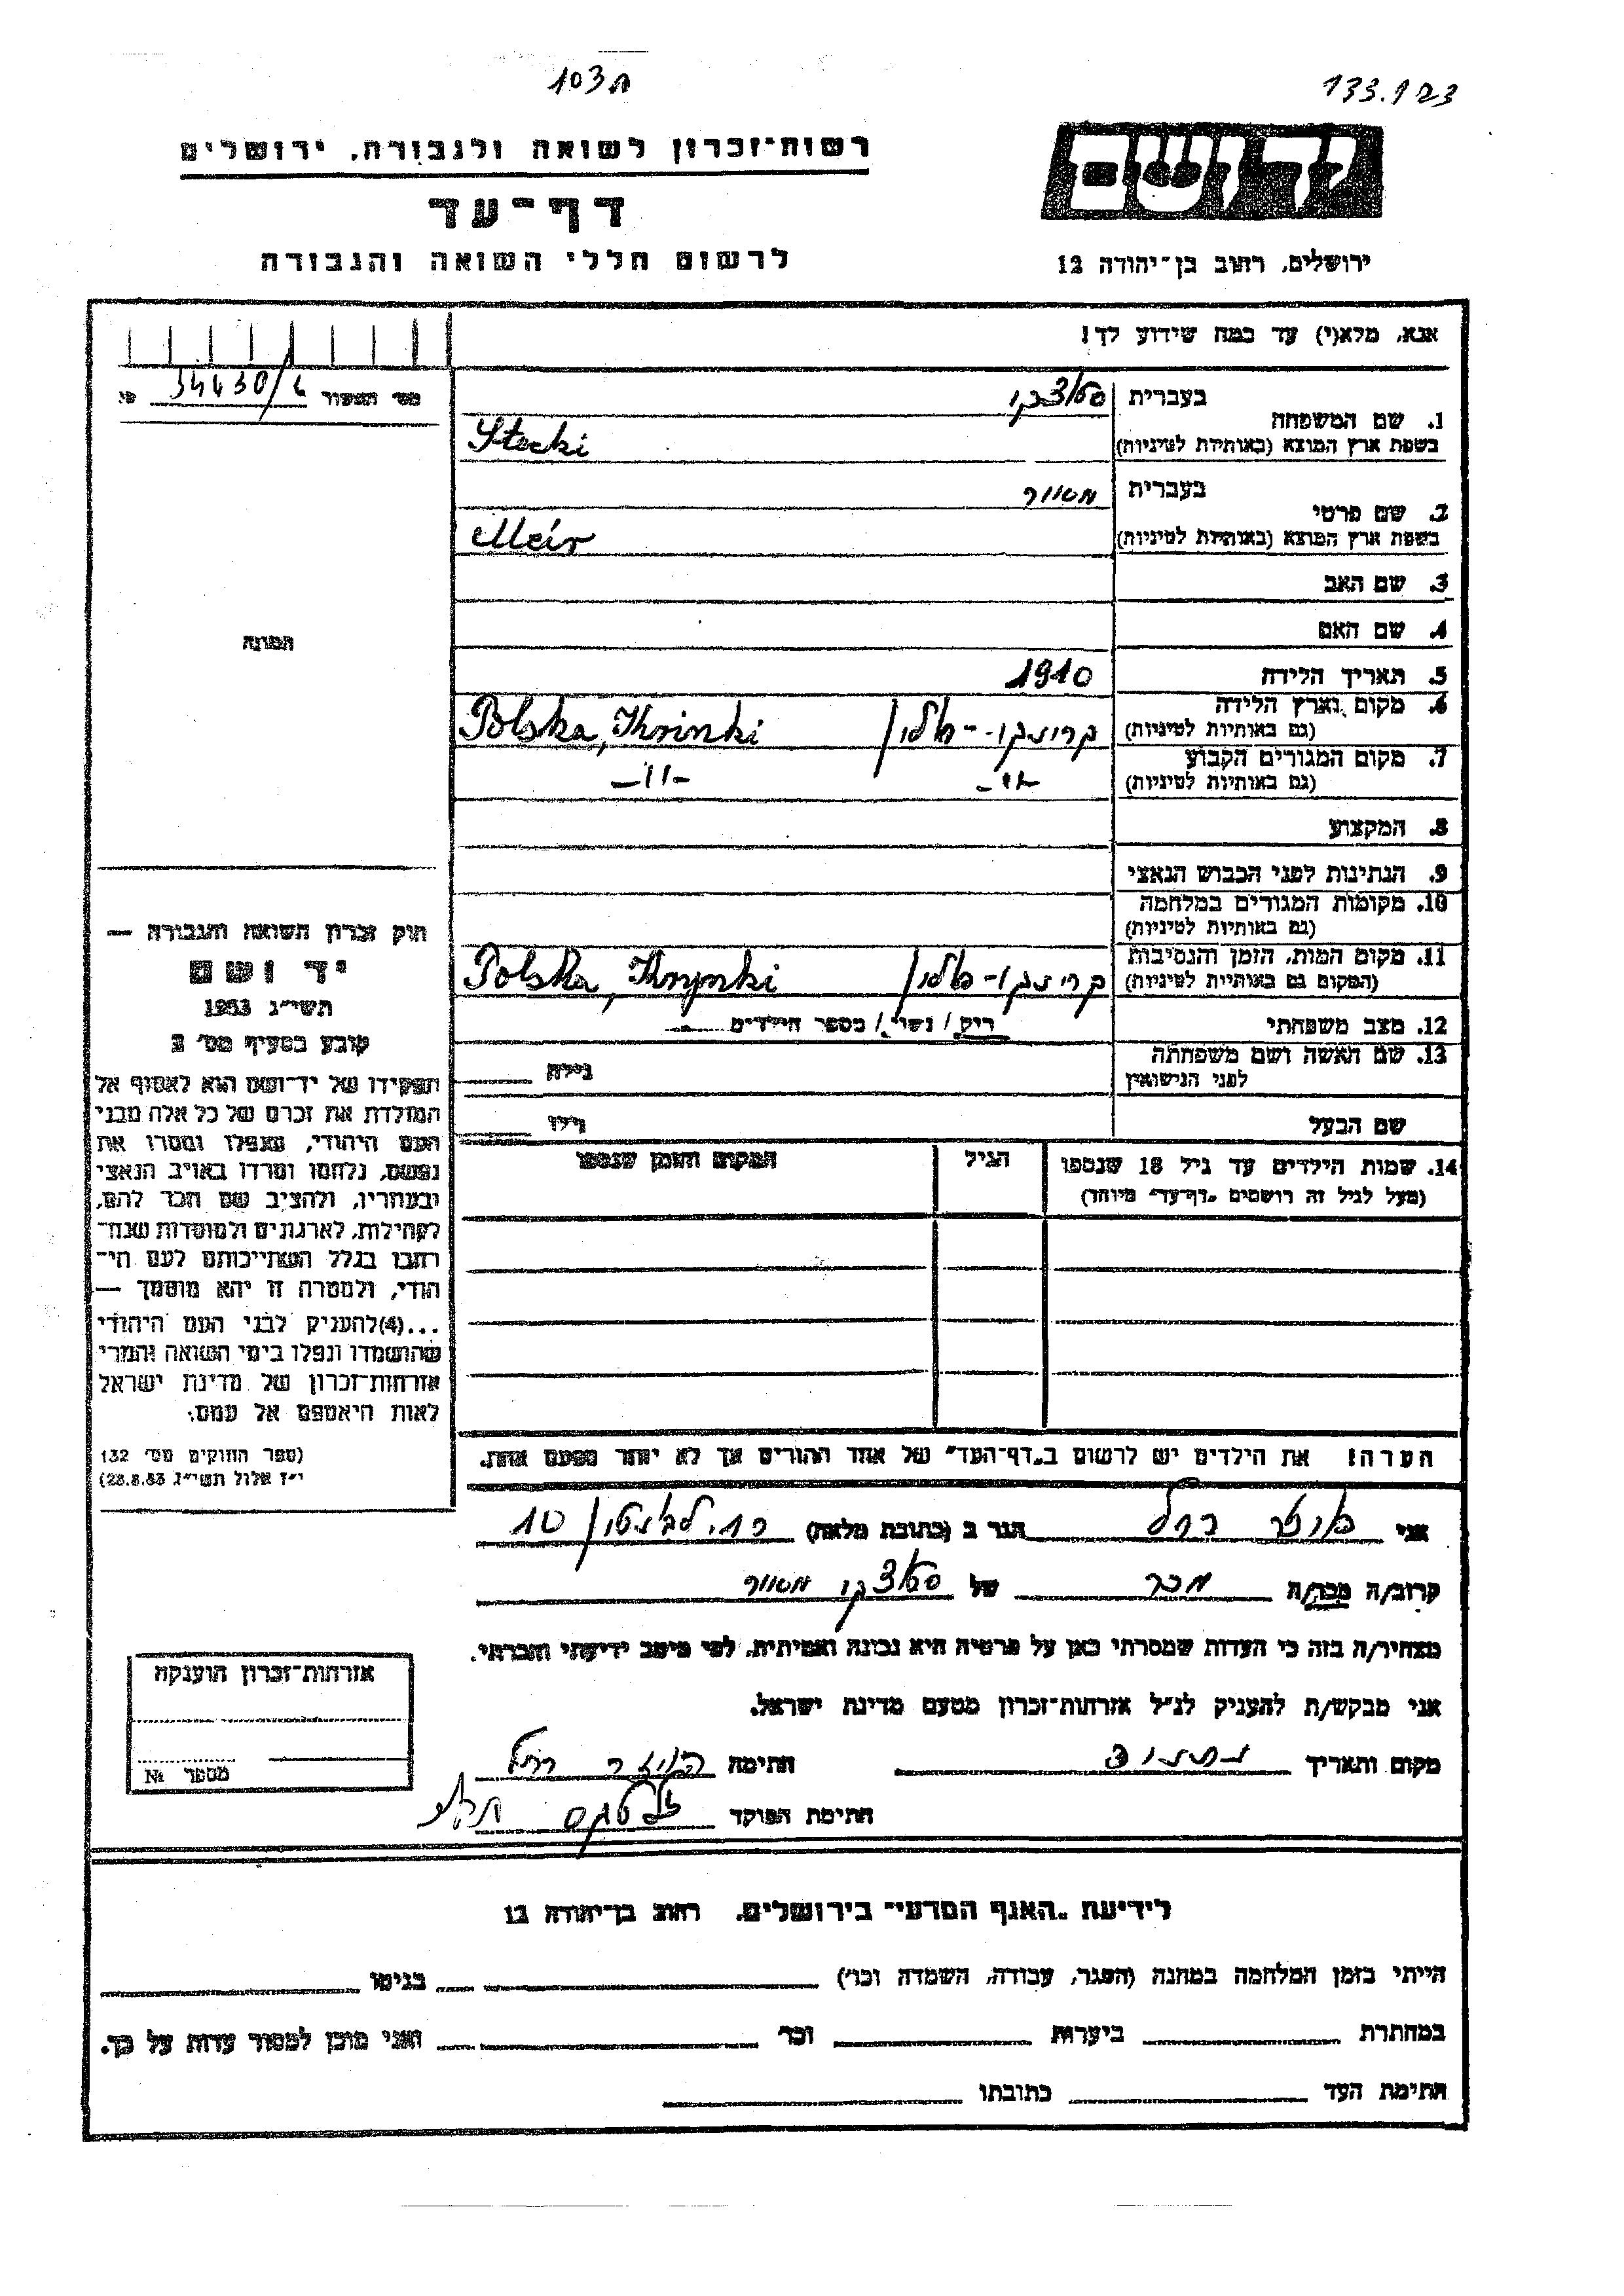 103ת
133.1
רשות־זכרון לשואה ולגבורה, ירושלים
דף־עד
לרשום חללי השואה והגבורה
יד ושם
ירושלים, רחוב בן־יהודה 12
אנא, מלא(י) עד כמה שידוע לך!
1. שם המשפחה
בעברית
בשפת ארץ המוצא (באותיות לטיניות)
Stecki
2. שם פרטי
בעברית
בשפת ארץ המוצא (באותיות לטיניות)
Meir
3. שם האב
4. שם האם
5. תאריך הלידה 1910
6. מקום וארץ הלידה
(גם באותיות לטיניות)
קרינקי - פולין Polska, Krinki
7. מקום המגורים הקבוע
(גם באותיות לטיניות)
-"- -"-
8. המקצוע
9. הנתינות לפני הכבוש הנאצי
10. מקומות המגורים במלחמה
(גם באותיות לטיניות)
11. מקום המות, הזמן והנסיבות
(המקום גם באותיות לטיניות)
קרינקי - פולין Polska, Krynki
12. מצב משפחתי רוק / נשוי / מספר הילדים
13. שם האשה ושם משפחתה
לפני הנישואין
גילה
שם הבעל גילו
14. שמות הילדים עד גיל 18 שנספו
(מעל לגיל זה רושמים "דף־עד" מיוחד)
הגיל
המקום והזמן שנספו
הערה! את הילדים יש לרשום ב"דף־העד" של אחד ההורים אך לא יותר מפעם אחת.
מס' המפקד 34430/
תמונה
חוק זכרון השואה והגבורה —
יד ושם
תשי"ג 1953
קובע בסעיף מס' 2
תפקידו של יד־ושם הוא לאסוף אל
המולדת את זכרם של כל אלה מבני
העם היהודי, שנפלו ומסרו את
נפשם, נלחמו ומרדו באויב הנאצי
ובעוזריו, ולהציב שם וזכר להם,
לקהילות, לארגונים ולמוסדות שנח־
רבו בגלל השתייכותם לעם הי־
הודי, ולמטרה זו יהא מוסמך —
...(4)להעניק לבני העם היהודי
שהושמדו ונפלו בימי השואה והמרי
אזרחות־זכרון של מדינת ישראל
לאות היאספם אל עמם.
(ספר החוקים מס' 132
י"ז אלול תשי"ג 28.8.53)
אני רחל הגר ב (כתובת מלאה) 10
קרוב/ה מכר/ה מכר של מאיר
מצהיר/ה בזה כי העדות שמסרתי כאן על פרטיה היא נכונה ואמיתית, לפי מיטב ידיעתי והכרתי.
אני מבקש/ת להעניק לנ"ל אזרחות־זכרון מטעם מדינת ישראל.
מקום ותאריך חתימה רחל
חתימת הפוקד
אזרחות־זכרון הוענקה
מספר №
לידיעת "האגף המדעי" בירושלים. רחוב בן־יהודה 12
הייתי בזמן המלחמה במחנה (הסגר, עבודה, השמדה וכו') בגיטו
במחתרת ביערות וכו' ואני מוכן למסור עדות על כך.
חתימת העד כתובתו